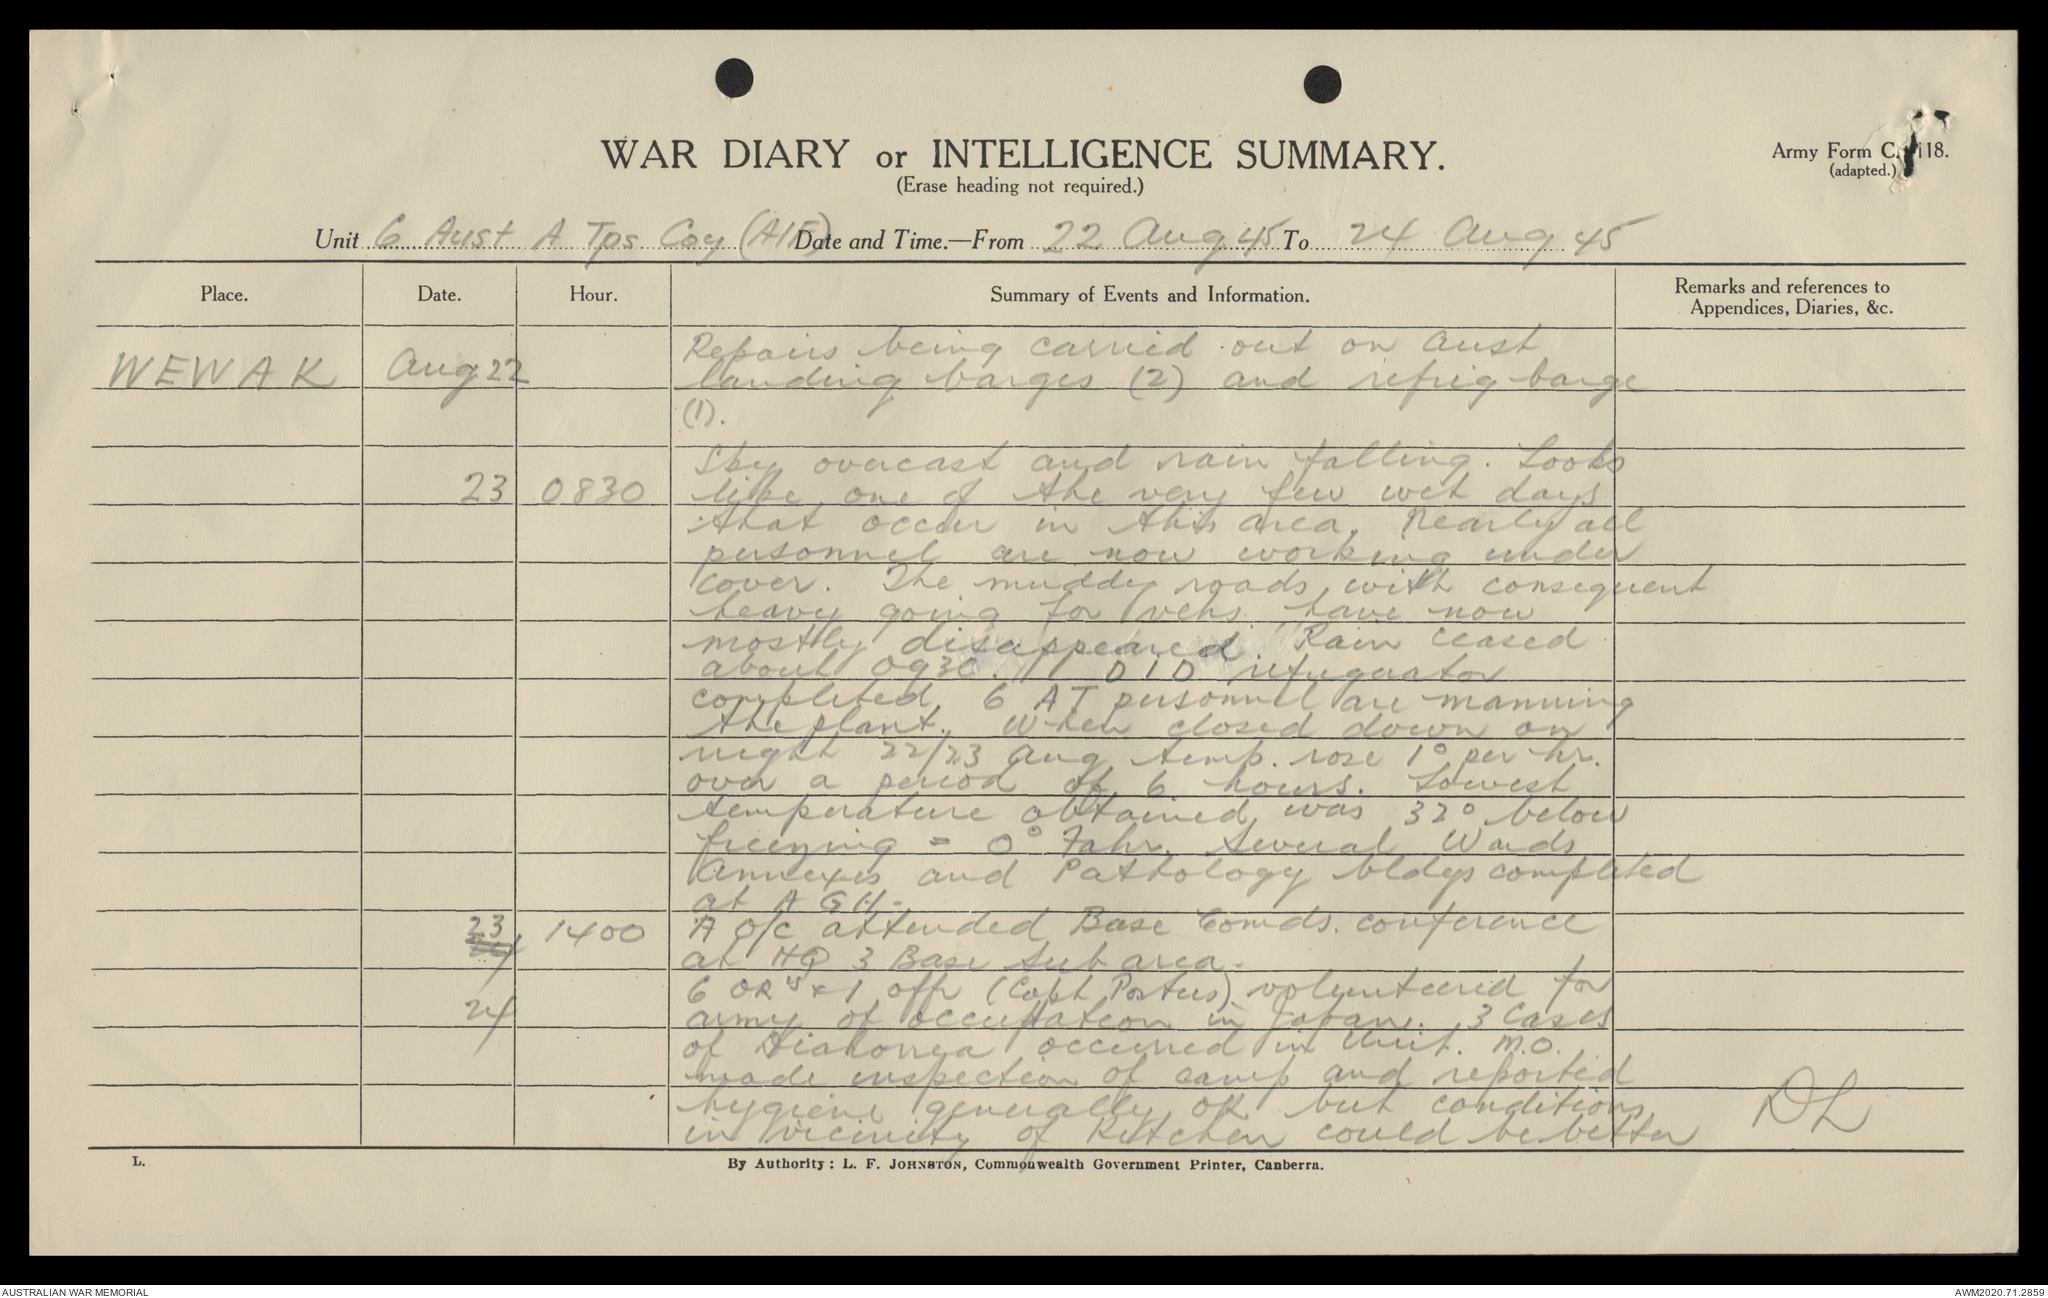 WAR DIARY or INTELLIGENCE SUMMARY.
(Erase heading not required.)
Army Form C. 118.
(adapted.)
Unit 6 Aust A Tps Coy (AIF) Date and Time.—From 22 Aug 45 To 24 Aug 45
Place. Date. Hour. Summary of Events and Information. Remarks and references to
Appendices, Diaries, &c.
Repairs being carried out on Aust
WEWAK Aug 22 landing barges (2) and refrig barge
(1).
Sky overcast and rain falling. Looks
23 0830 like one of the very few wet days
that occur in this area. Nearly all
personnel are now working under
cover. The muddy roads, with consequent
heavy going for vehs. have now
mostly disappeared. Rain ceased
about 0930. 11 DID refrigerator
completed. 6 AT personnel are manning
the plant. When closed down on
night 22/23 Aug temp. rose 1° per hr.
over a period of 6 hours. Lowest
temperature obtained was 32° below
freezing = 0° Fahr. Several Wards
Annexes and Pathology bldgs completed
at A GH.
23 1400 A o/c attended Base Comds. conference
at HQ 3 Base Sub area.
6 OR's + 1 offr (Capt Porteus) volunteered for
24 army of occupation in Japan. 3 Cases
of Diahorrea occurred in Unit. M.O.
made inspection of camp and reported
hygiene generally OK but conditions
in vicinity of Kitchen could be better
DL
L.
By Authority: L. F. JOHNSTON, Commonwealth Government Printer, Canberra.
AUSTRALIAN WAR MEMORIAL
AWM2020.71.2859